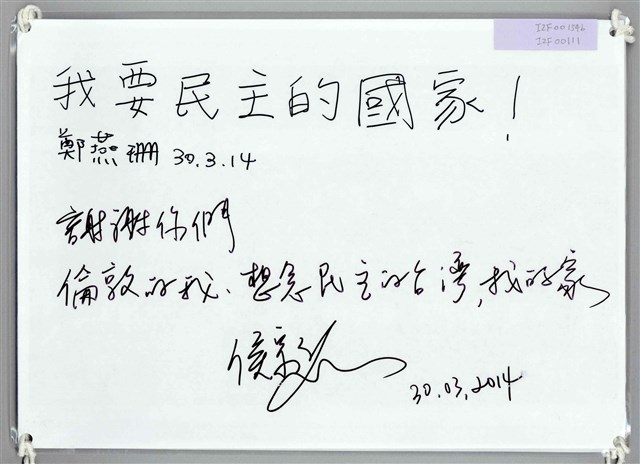 I2F001592
I2F00111
我要民主的國家！
鄭燕珊 30.3.14
謝謝你們
倫敦的我、想念民主的台灣,我的家
30.03.2014